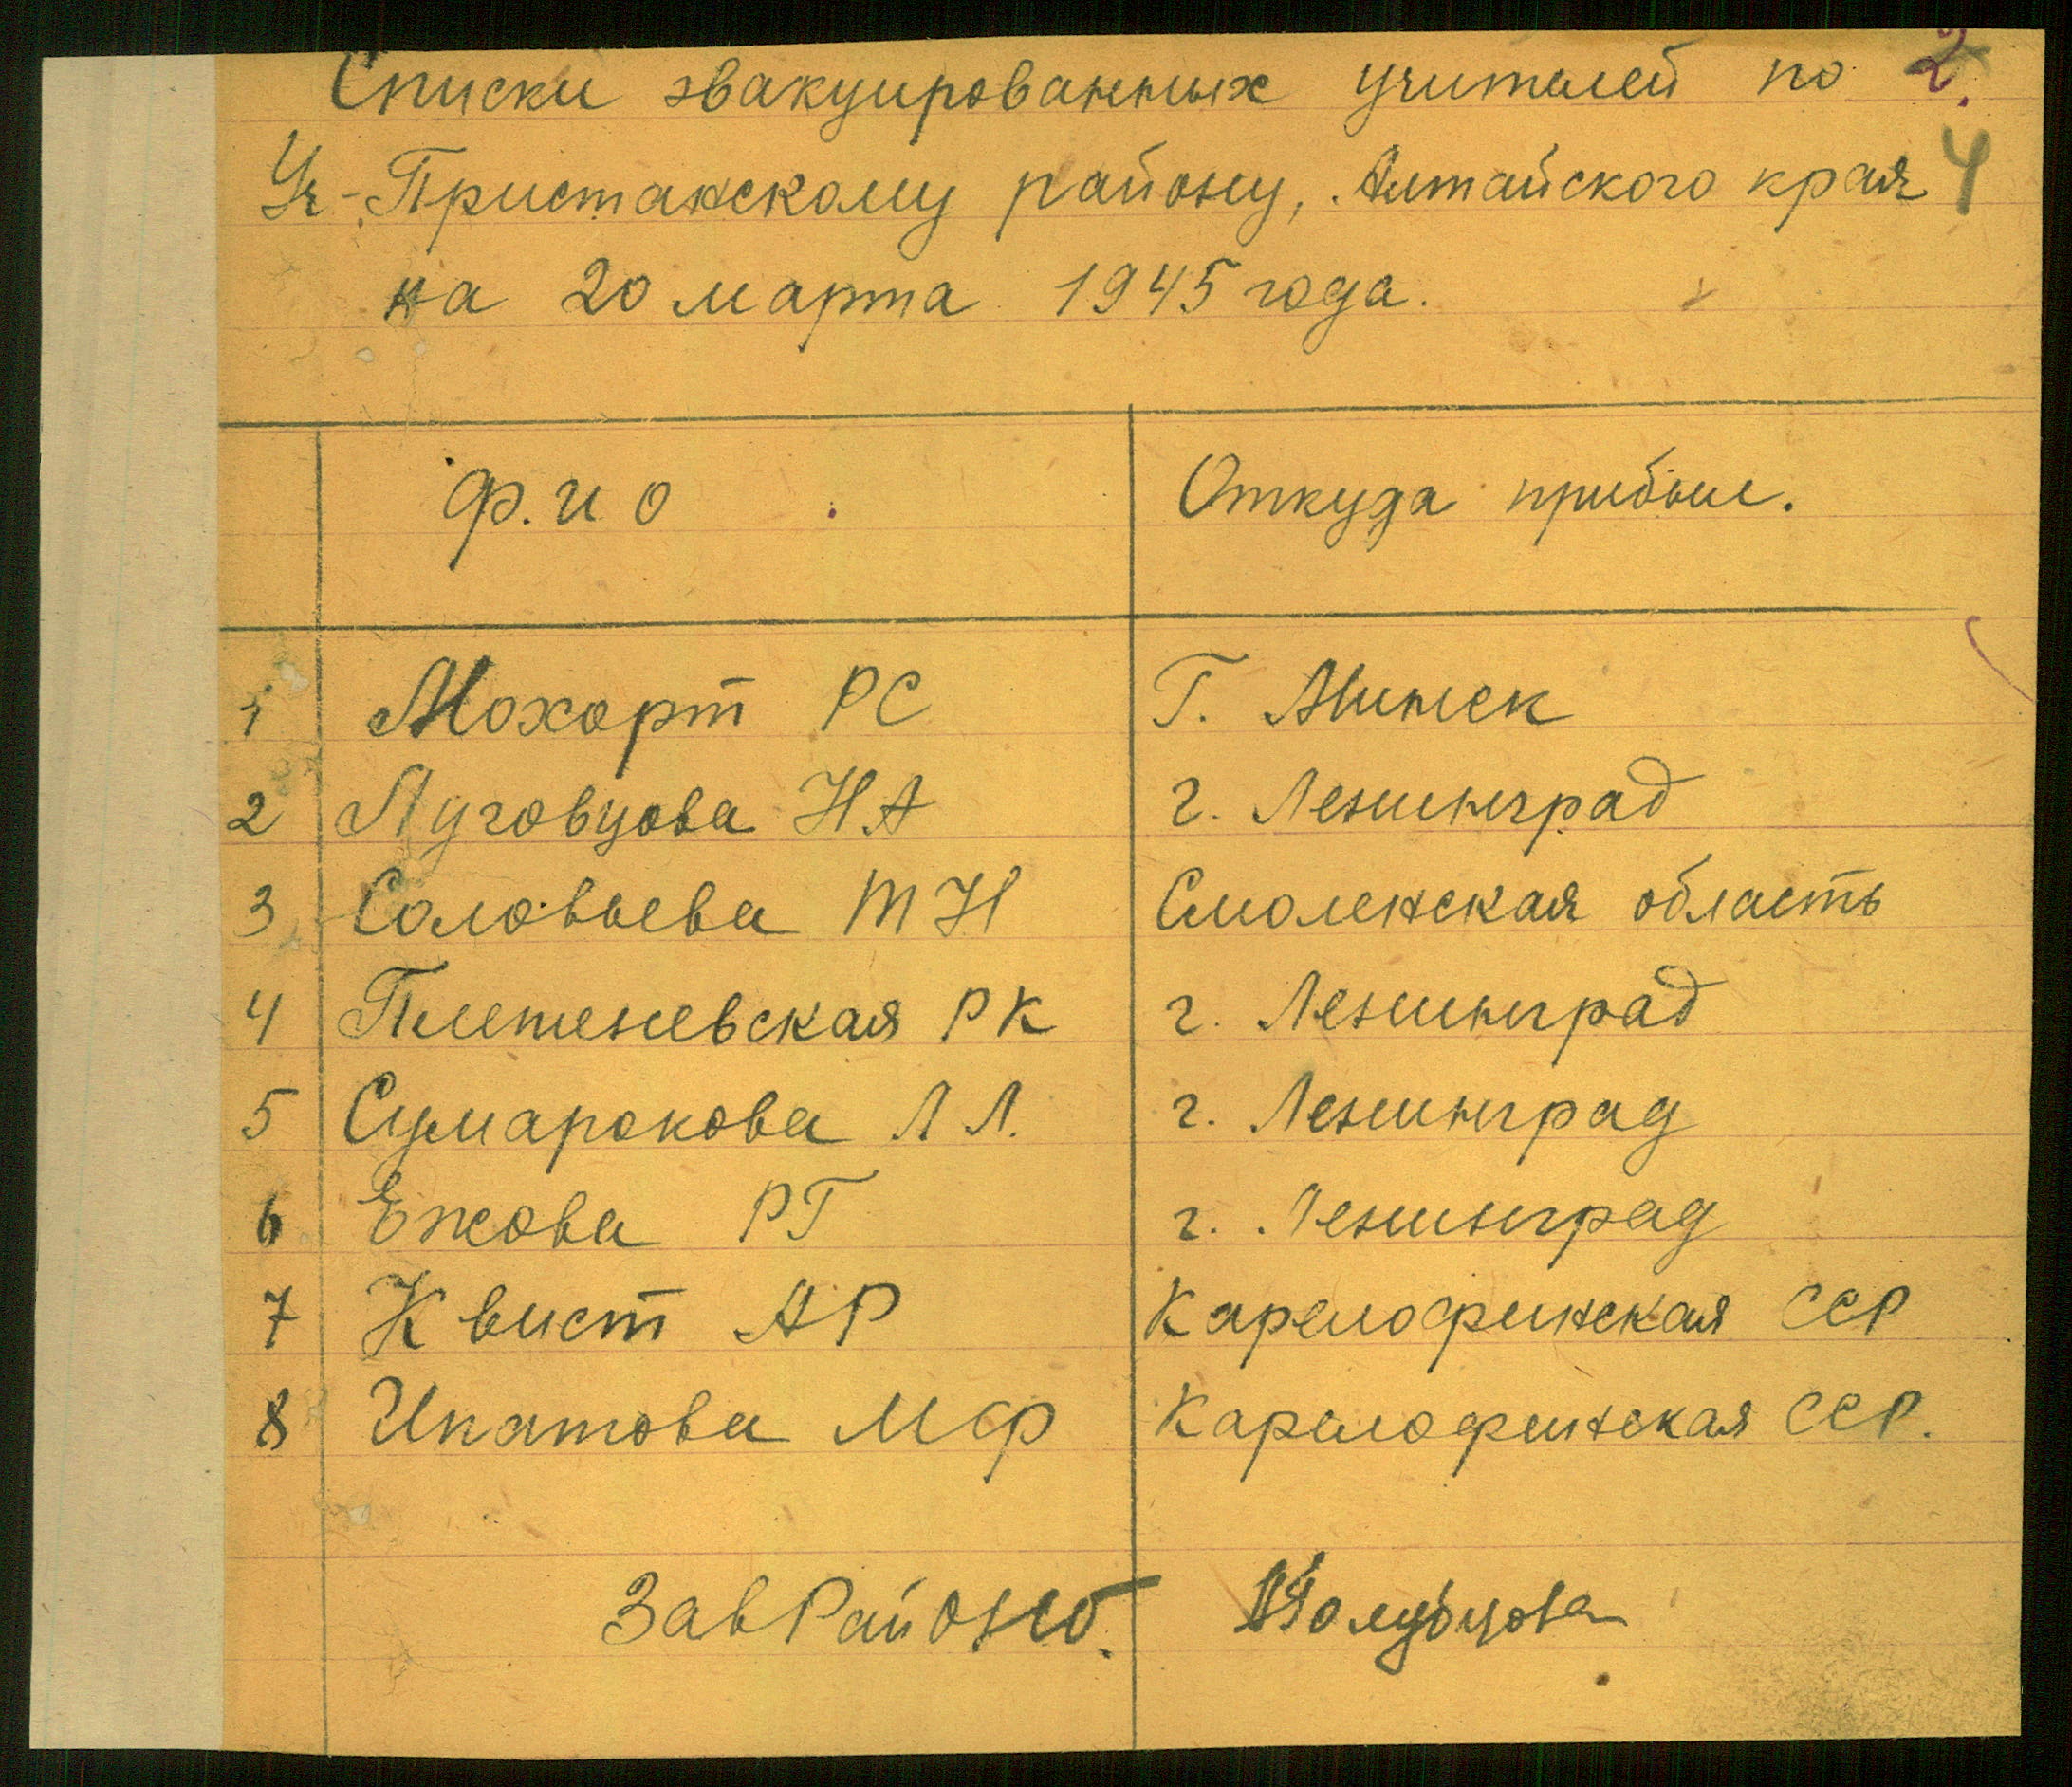 Списки эвакуированных учителей по 2.
Уч-Пристанскому району, Алтайского края 4
на 20 марта 1945 года.
Ф.И О Откуда прибыл.
1 Мохорт РС Г. Минск
2 Луговцова НА г. Ленинград
3 Соловьева ТН Смоленская область
4 Плетеневская РК г. Ленинград
5 Сумарокова Л Л. г. Ленинград
6 Ежова РГ г. Ленинград
7 Квист АР Карелофинская ССР
8 Ипатова МФ Карелофинская ССР.
ЗавРайоно